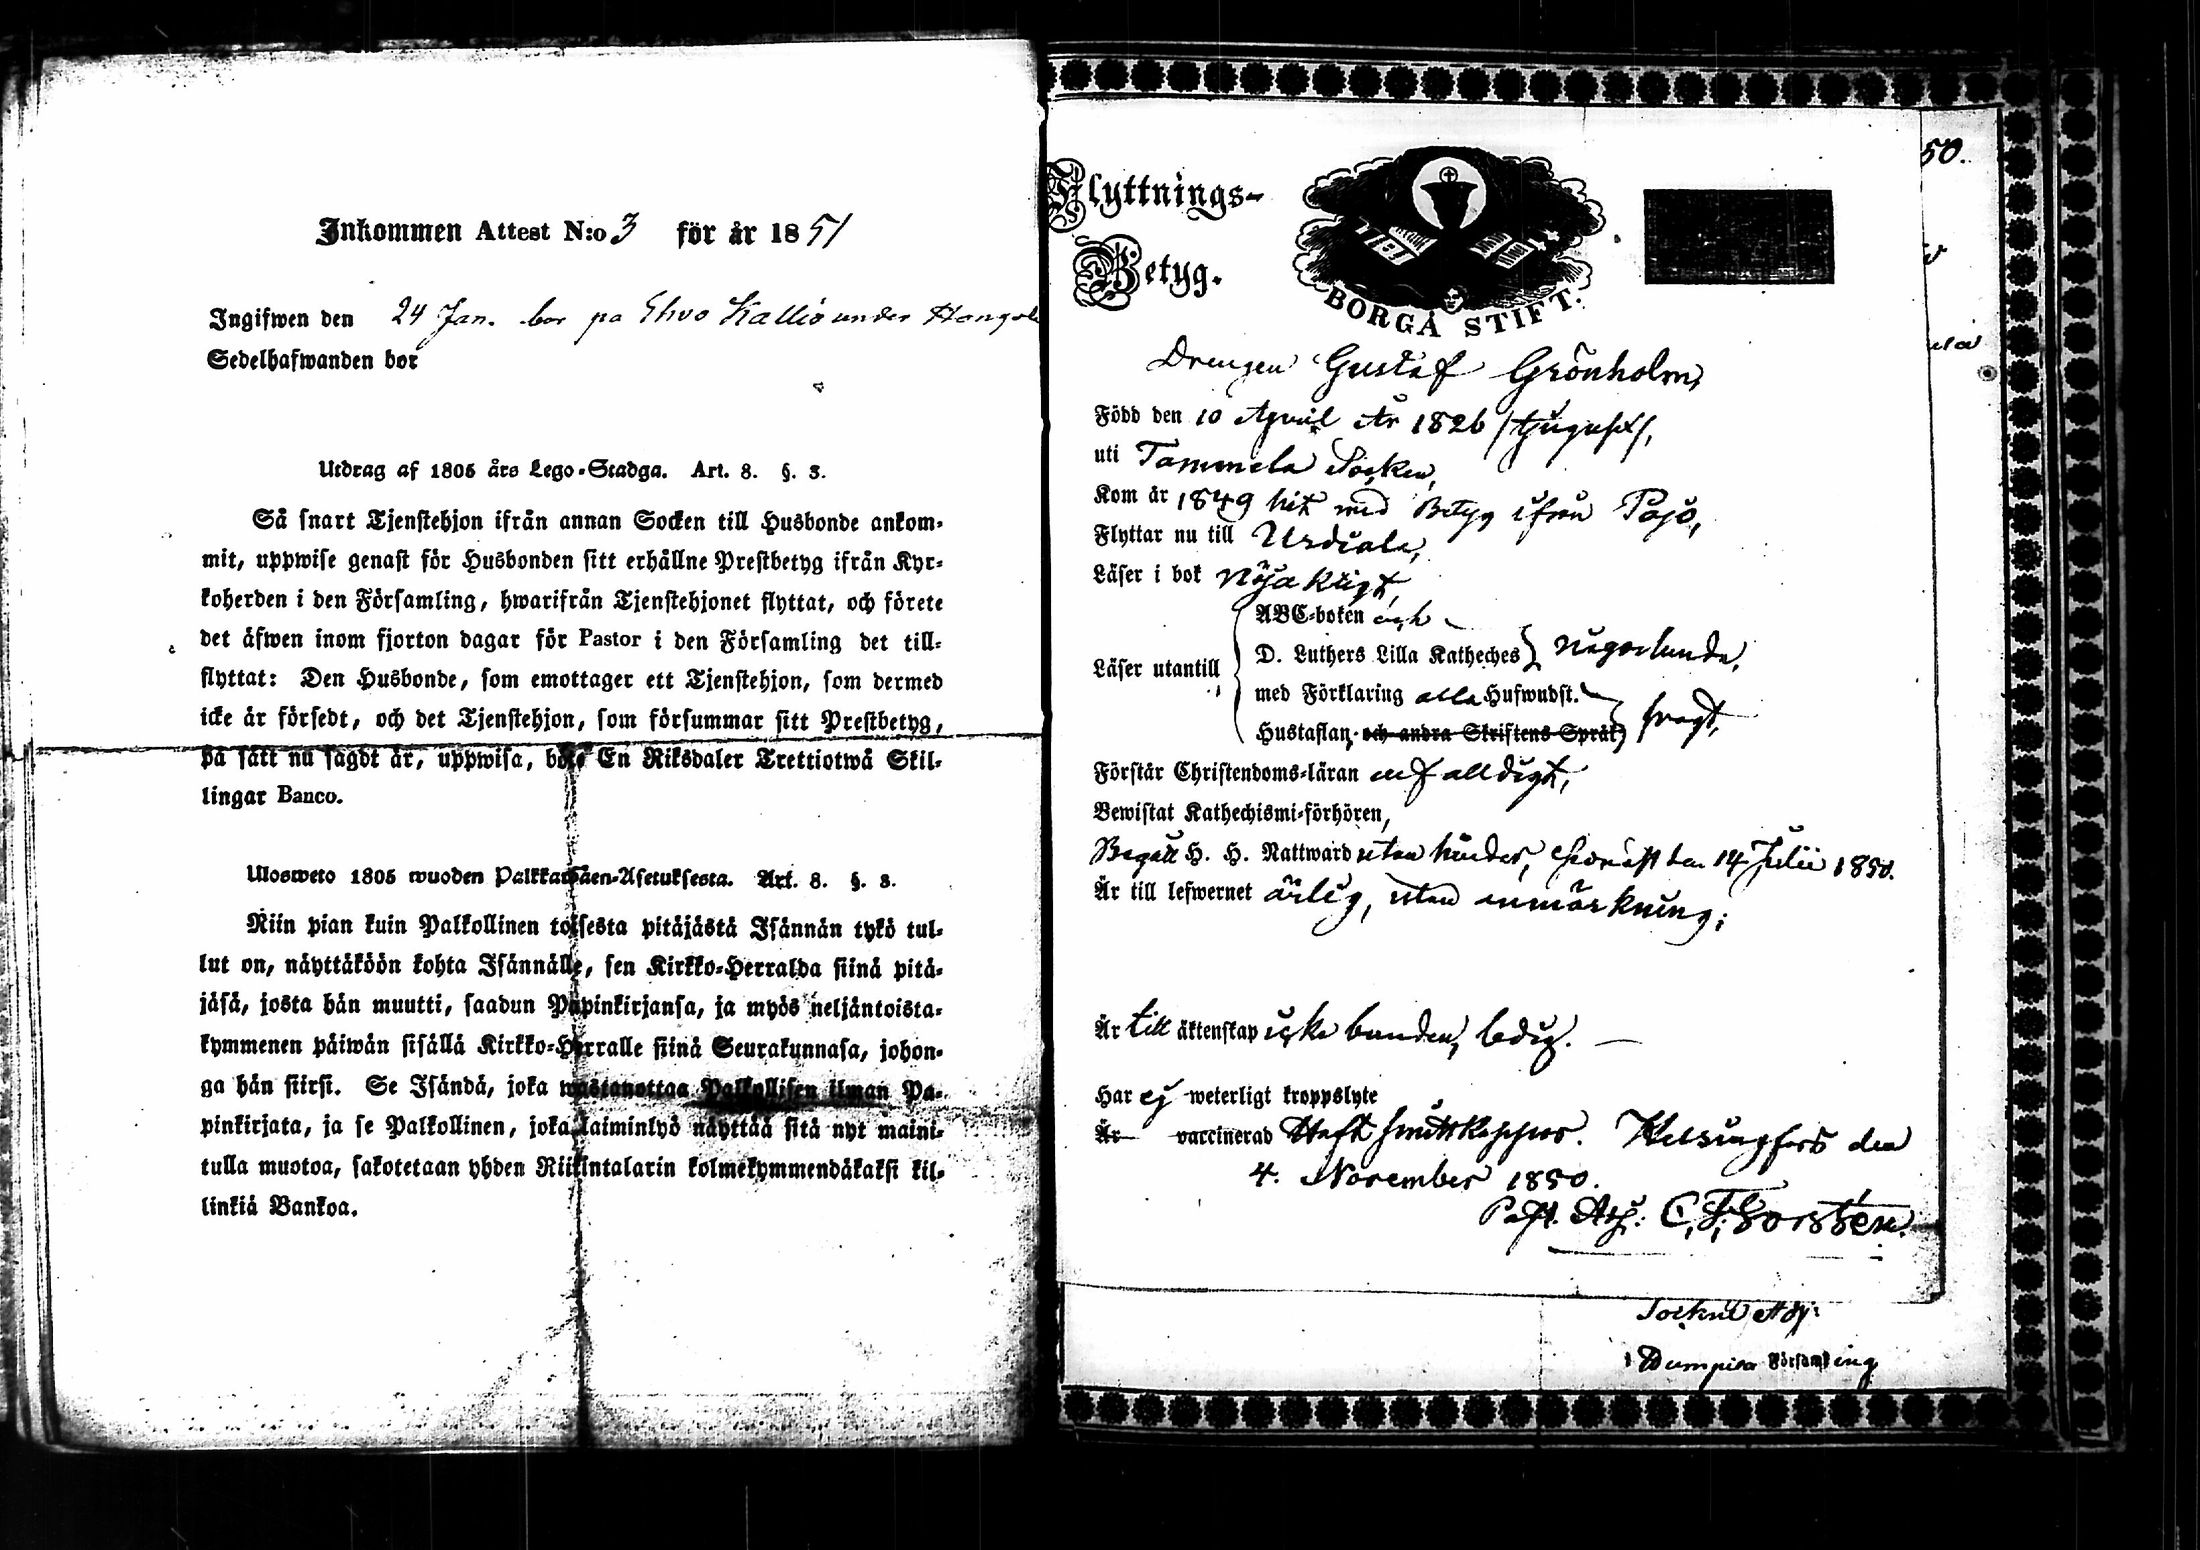 Inkommen Attest N:o 3 för år 1851
Ingifwen den 24 Jan. bor på Kallio under
Sedelhafwanden bor
Utdrag af 1805 års Lego-Stadga. Art. 8. §. 3.
Så snart Tjenstehjon ifrån annan Socken till Husbonde ankom-
mit, uppwise genast för Husbonden sitt erhållne Prestbetyg ifrån Kyr-
koherden i den Församling, hwarifrån Tjenstehjonet flyttat, och förete
det äfwen inom fjorton dagar för Pastor i den Församling det till-
flyttat: Den Husbonde, som emottager ett Tjenstehjon, som dermed
icke är försedt, och det Tjenstehjon, som försummar sitt Prestbetyg,
på sätt nu sagdt är, uppwisa, böte En Riksdaler Trettiotwå Skil-
lingar Banco.
Ulosweto 1805 wuoden Palkkawäen-Asetuksesta. Art. 8. §. 3.
Niin pian kuin Palkollinen toisesta pitäjästä Isännän tykö tul-
lut on, näyttäköön kohta Isännälle, sen Kirkko-Herralda siinä pitä-
jäsä, josta hän muutti, saadun Papinkirjansa, ja myös neljäntoista-
kymmenen päiwän sisällä Kirkko-Herralle siinä Seurakunnasa, johon-
ga hän siirsi. Se Isändä, joka wastanottaa Palkollisen ilman Pa-
pinkirjata, ja se Palkollinen, joka laiminlyö näyttää sitä nyt maini-
tulla muotoa, sakotetaan yhden Riikintalarin kolmekymmendäkaksi kil-
linkiä Bankoa.
Flyttnings-
Betyg.
BORGÅ STIFT.
50.
Drengen Gustaf Grönholm,
Född den 10 April År 1826 /tjugusex/,
uti Tammela Socken,
Kom år 1849 hit med Betyg ifrån Pojo,
Flyttar nu till Urdiala,
Läser i bok nöjaktigt,
ABC-boken och
D. Luthers Lilla Katheches någorlunda,
Läser utantill
med Förklaring alla Hufwudst.
Hustaflan och andra Skriftens Språk svagt,
Förstår Christendoms-läran enfalldigt,
Bewistat Kathechismi-förhören,
Begått H. H. Nattward utan hinder, senast den 14 Julii 1850.
Är till lefwernet ärlig, utan anmärkning;
Är till äktenskap icke bunden, ledig.
Har ej weterligt kroppslyte
Är vaccinerad Haft smittkoppor. Helsingfors den
4. November 1850.
Past. Adj: C. F. Forstén.
Församling